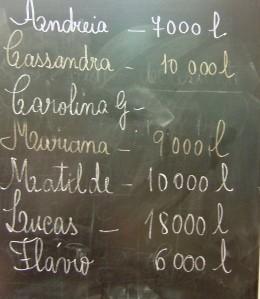 Andreia – 7000 l
Cassandra – 10 000 l
Carolina G –
Mariana – 9000 l
Matilde – 10000 l
Lucas – 18000 l
Flávio 6000 l